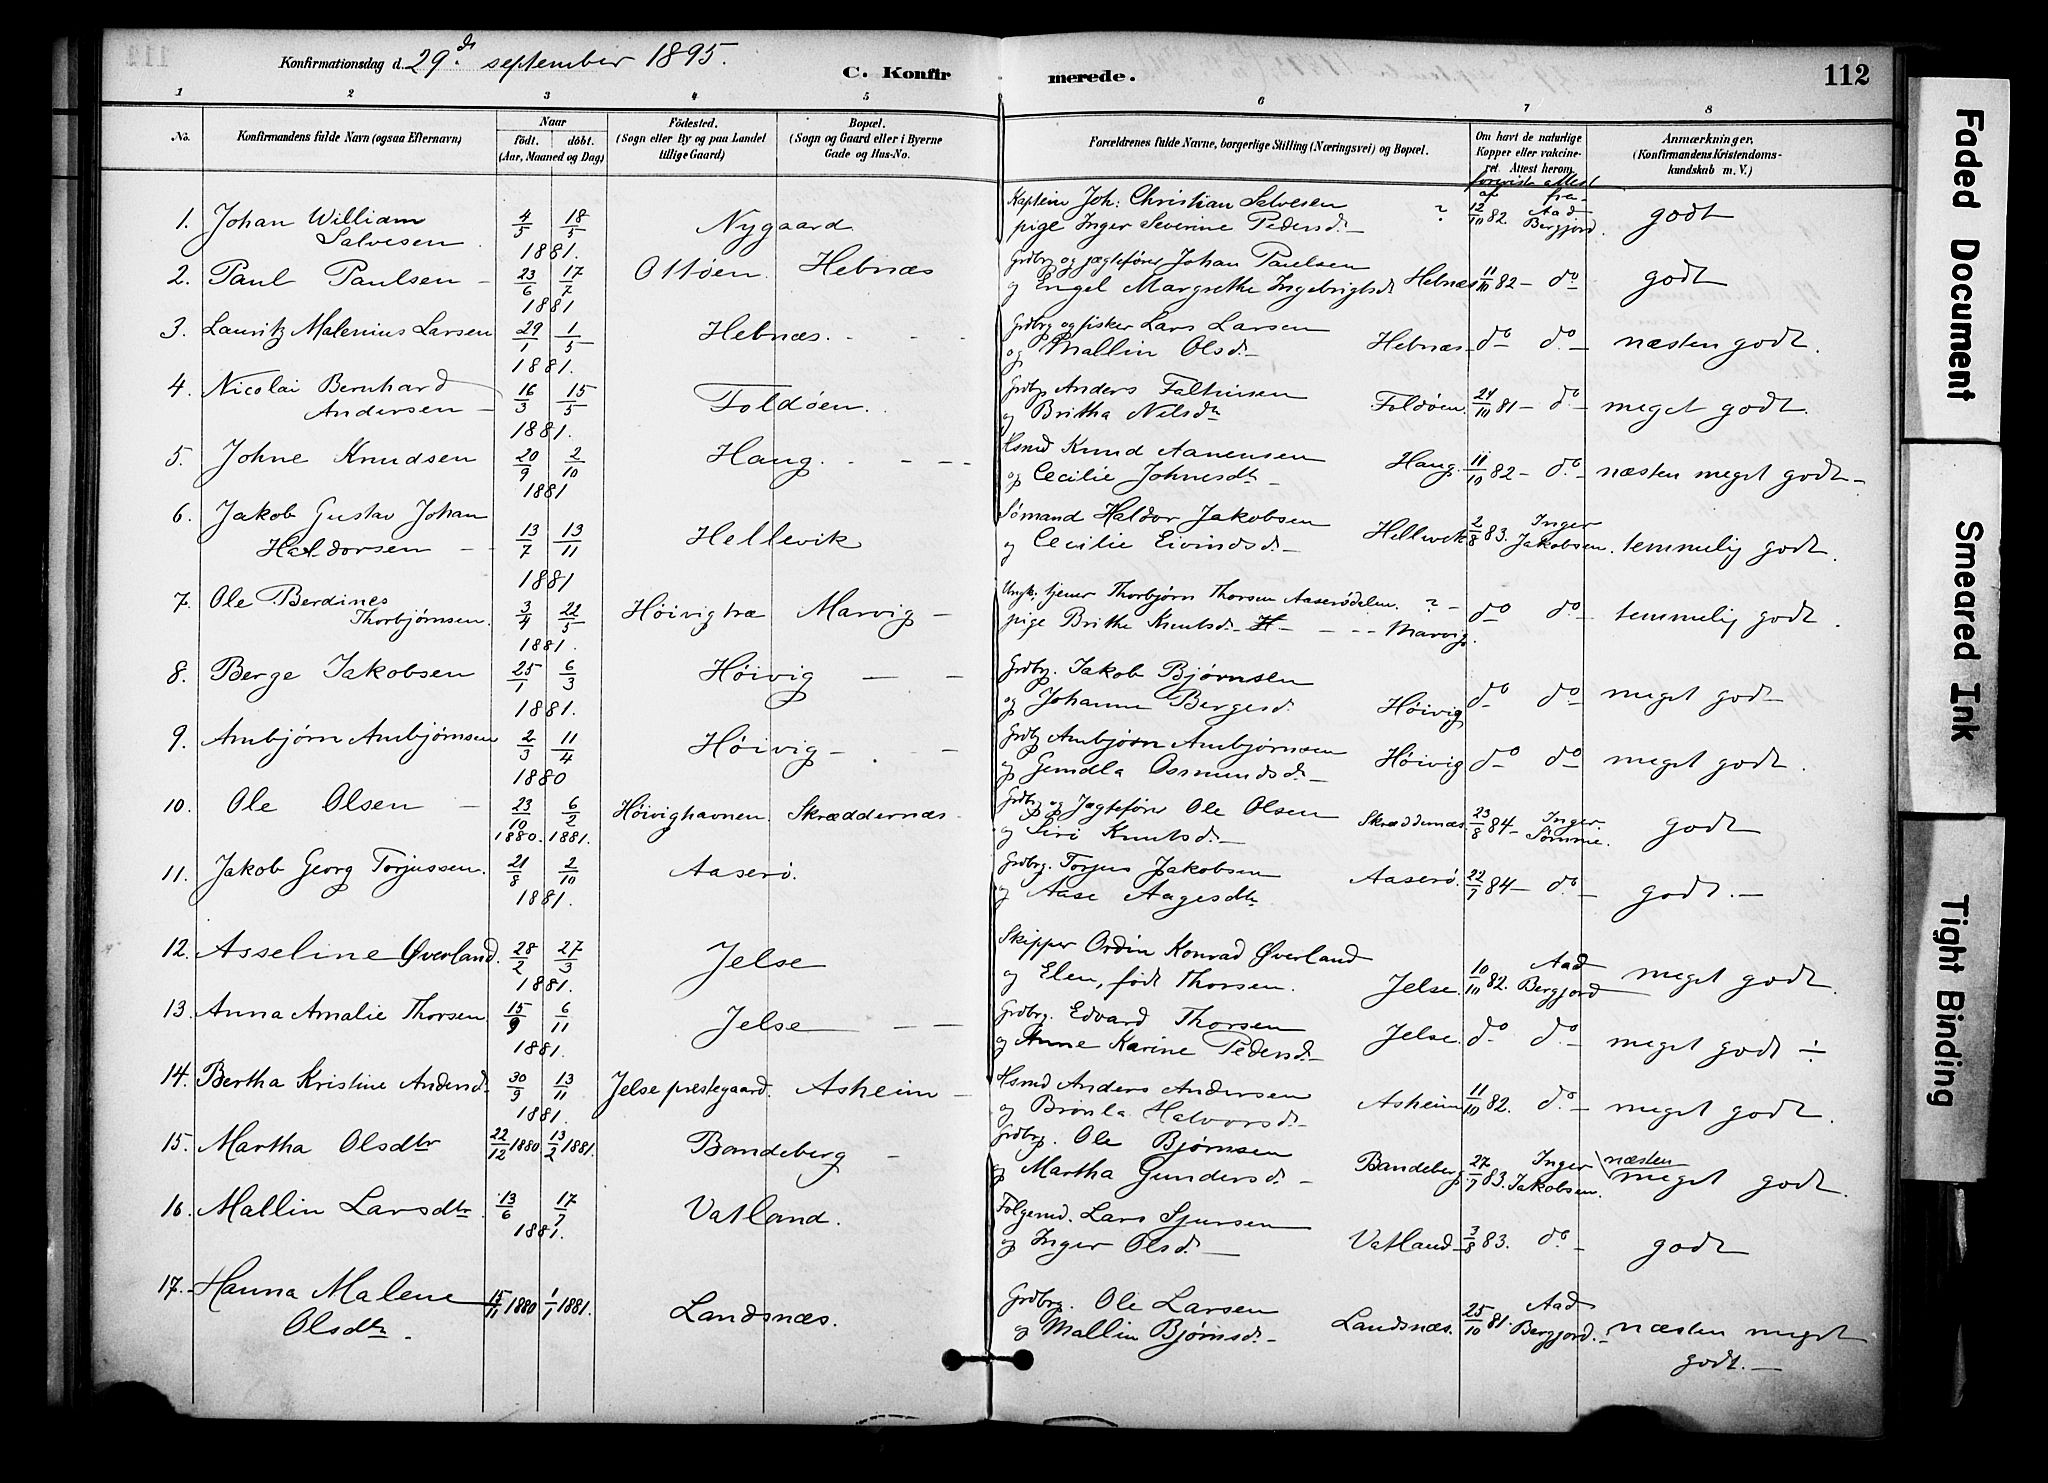 Konfirmationsdag d. 29de september 1895.
C. Konfirmerede.
112
1 2 3 4 5 6 7 8
No.
Konfirmandens fulde Navn (ogsaa Efternavn)
Naar
födt. döbt.
(Aar, Maaned og Dag)
Födested.
(Sogn eller By og paa Landet
tillige Gaard)
Bopæl.
(Sogn og Gaard eller i Byerne
Gade og Hus-No.
Forældrenes fulde Navne, borgerlige Stilling (Næringsvei) og Bopæl.
Om havt de naturlige
Kopper eller vakcine-
ret. Attest herom
Anmærkninger.
(Konfirmandens Kristendoms-
kundskab m. V.)
forevist attest
af fra
1. Johan William Salvesen 4/5 18/5 1881. Nygaard
Kaptein Joh: Christian Salvesen ?
pige Inger Severine Pedersd. 12/10 82. Aad Bergjord. godt
2. Paul Paulsen 23/6 17/7 1881 Ottøen. Hebnæs
Grdbrg og jægtefører Johan Paulsen
og Engel Margrethe Ingebrigtsd. Hebnæs 11/10 82 do godt
3. Lauritz Malenius Larsen 29/1 1/5 1881. Hebnæs.
Grdbrg og fisker Lars Larsen
og Mallin Olsd. Hebnæs do do næsten godt.
4. Nicolai Bernhard Andersen 16/3 15/5 1881. Foldøen.
Grdbrg. Anders Faltinsen
og Britha Nilsdtr Foldøen. 24/10 81 do meget godt.
5. Johne Knudsen 20/9 2/10 1881 Haug.
Hsmd Knud Aanensen
og Cecilie Johnesdtr Haug. 11/10 82 do næsten meget godt
6. Jakob Gustav Johan Haldorsen 13/7 13/11 1881 Hellevik
Sømand Haldor Jakobsen
og Cecilie Eivindsd. Hellevik 2/8 83. Inger Jakobsen. temmelig godt.
7. Ole Berdines Thorbjørnsen. 3/4 22/5 1881. Høivigtræ Marvig
Ungk. tjener Thorbjørn Thorsen Aaserødelen. ?
pige Brithe Knutsd. Marvig. do do temmelig godt.
8. Berge Jakobsen 25/1 6/3 1881. Høivig
Grdbrg. Jakob Bjørnsen
og Johanne Bergesd. Høivig do do meget godt
9. Ambjørn Ambjørnsen 2/3 11/4 1880 Høivig
Grdbrg Ambjørn Ambjørnsen
og Gundla Osmundsd. Høivig do do meget godt.
10. Ole Olsen 23/10 1880. 6/2 1881. Høivighavnen Skræddernæs.
Grdbrg og Jægtefører Ole Olsen
og Siri Knutsd. Skræddernæs 23/8 84 Inger Sømme. godt
11. Jakob Georg Torjussen. 21/8 2/10 1881. Aaserø.
Grdbrg. Torjus Jakobsen
og Aase Aagesdtr Aaserø. 22/7 84 do godt.
12. Asseline Øverland. 28/2 27/3 1881. Jelse
Skipper Ordin Konrad Øverland
og Elen, født Thorsen. Jelse. 10/10 82. Aad Bergjord meget godt.
13. Anna Amalie Thorsen 15/9 6/11 1881. Jelse
Grdbrg. Edvard Thorsen
og Anne Karine Pedersd. Jelse. do do meget godt ÷
14. Bertha Kristine Andersd. 30/9 13/11 1881. Jelse prestegaard. Asheim
Hsmd Anders Andersen
og Brønla Halvorsd. Asheim 11/10 82. do meget godt.
15. Martha Olsdtr 22/12 1880 13/2 1881. Bandeberg
Grdbrg. Ole Bjørnsen
og Martha Gundersd. Bandeberg 27/7 83. Inger Jakobsen. næsten meget godt.
16. Mallin Larsdtr. 13/6 17/7 1881. Vatland.
Folgemd. Lars Sjursen
og Inger Olsd. Vatland 3/8 83. do godt
17. Hanna Malene Olsdtr. 15/11 1880 1/1 1881. Landsnæs.
Grdbrg. Ole Larsen
og Mallin Bjørnsd. Landsnæs. 25/10 81. Aad Bergjord. næsten meget godt.
Faded Document
Smeared Ink
Tight Binding